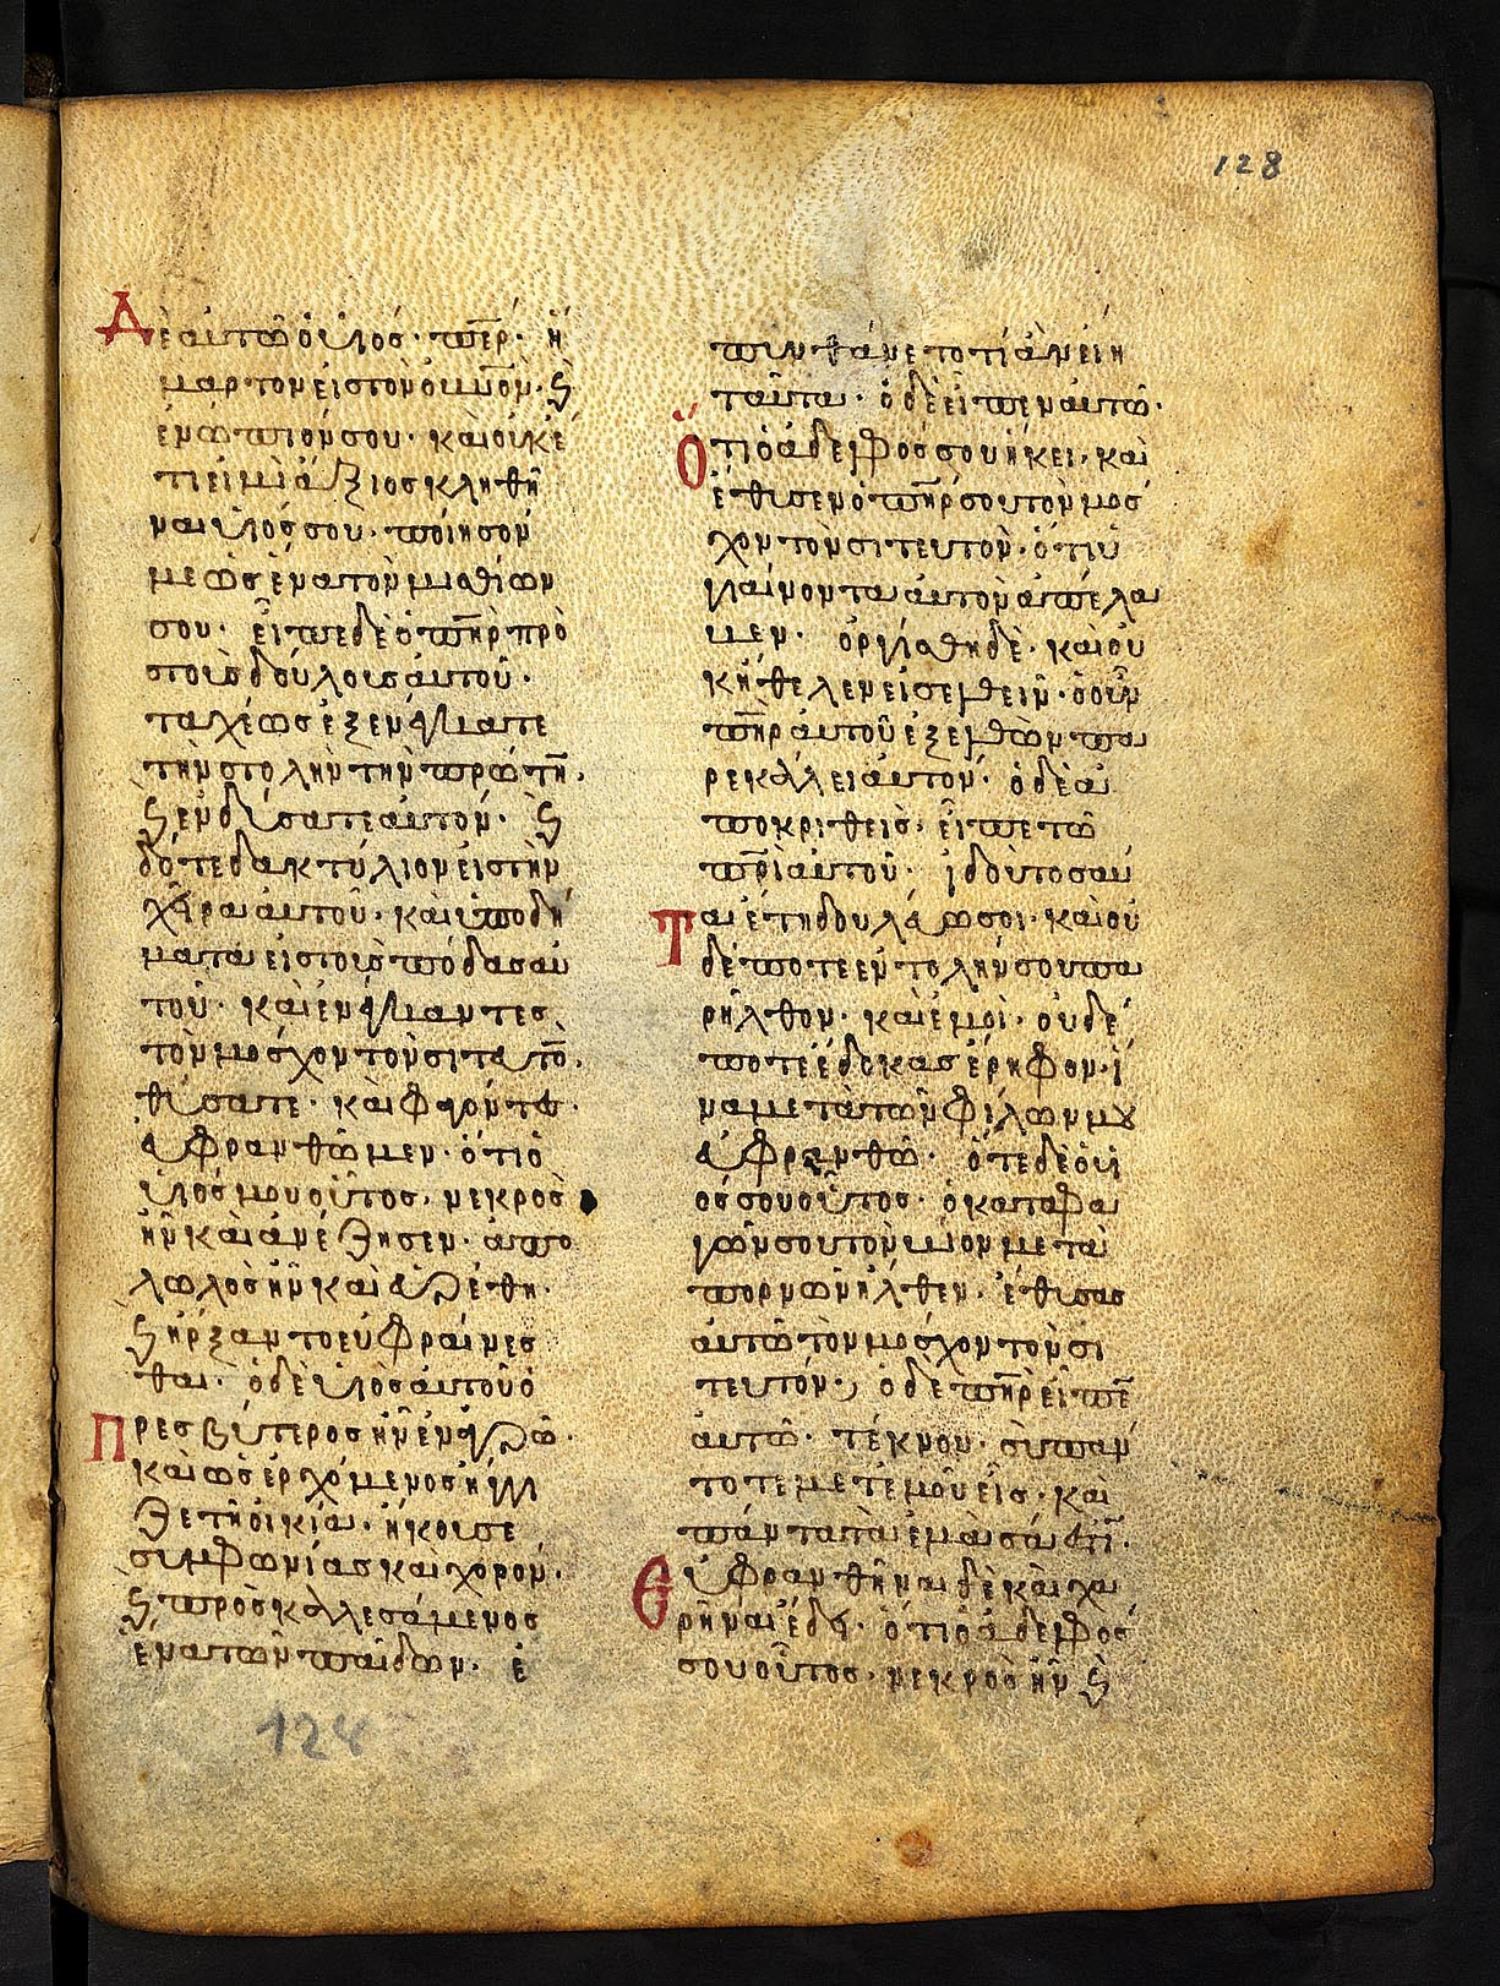 128
Δὲ αὐτῶ ὁ υἱὸσ· περ· ἥ
μαρτον εἰς τὸν οὐνὸν· ϗ
ἐνώπιόν σου· καὶ οὐκέ
τι εἰμὶ ἄξιος κληθῆ
ναι υἱός σου· ποίησόν
με ὡς ἕνα τὸν μισθίων
σου· εἶπε δὲ ὁ πηρ πρὸ
σ τοὺς δούλους αὐτοῦ·
ταχέως ἐξενέγκατε
τὴν στολὴν τὴν πρώτη·
ϗ ἐνδύσατε αὐτόν· ϗ
δότε δακτύλιον εἰς τὴν
χεῖρα αὐτοῦ· καὶ ὑποδή
ματα εἰς τοὺς πόδασ αὐ
τοῦ· καὶ ἐνέγκαντες
τὸν μόσχον τὸν σιτευτὸ·
θύσατε· καὶ φαγόντες·
εὐφρανθῶμεν· ὅτι ὁ
υἱός μου οὗτος· νεκρὸς
ἦν καὶ ἀνέζησεν· ἀπο
λωλὸς ἦν καὶ εὑρέθη·
ϗ ἤρξαντο εὐφραίνεσ
θαι· ὁ δὲ υἱὸς αὐτοῦ ὁ
Πρεσβύτερος ἦν ἐν ἀγρῶ·
καὶ ὡς ἐρχόμενος ἤγγι
ζε τῆ οἰκία· ἤκουσε
συμφωνίας καὶ χορόν·
ϗ προσκαλλεσάμενος
ἕνα τῶν παίδων· ἐ
πυνθάνετο τί ἂν εἴη
ταῦτα· ὁ δὲ εἶπεν αὐτῶ·
Ὅτι ὁ ἀδελφός σου ἥκει· καὶ
ἔθυσεν ὁ πηρ σου τὸν μόσ
χον τὸν σιτευτὸν· ὅτι ὑ
γιαίνοντα αὐτὸν ἀπέλα
βεν· ὀργίσθη δὲ· καὶ οὐ
κ ἤθελεν εἰσελθεῖν· ὁ οὖν
πηρ αὐτοῦ ἐξελθὼν πα
ρεκάλλει αὐτόν· ὁ δὲ ἀ
ποκριθεὶς· εἶπε τῶ
πρι αὐτοῦ· ἰδοὺ τοσαῦ
Ται ἔτη δουλεύω σοι· καὶ οὐ
δέποτε ἐντολήν σου πα
ρῆλθον· καὶ ἐμοὶ· οὐδέ
ποτε ἔδοκας ἔρηφον· ἵ
να μετὰ τῶν φίλων μου
εὐφρανθῶ· ὅτε δὲ ὁ υἱ
ός σου οὗτος· ὁ καταφα
γών σου τὸν βίον μετὰ
πορνῶν ἦλθεν· ἔθυσας
αὐτῶ τὸν μόσχον τὸν σι
τευτόν· ὁ δὲ πηρ εἶπε
αὐτῶ· τέκνον· σὺ πάν
τοτε μετ ἐμοῦ εἶς· καὶ
πάντα τὰ ἐμὰ σά ἐστι·
Εὐφρανθῆναι δὲ καὶ χα
ρῆναι ἔδει· ὅτι ὁ ἀδελφός
σου οὗτος· νεκρὸς ἦν ϗ
124